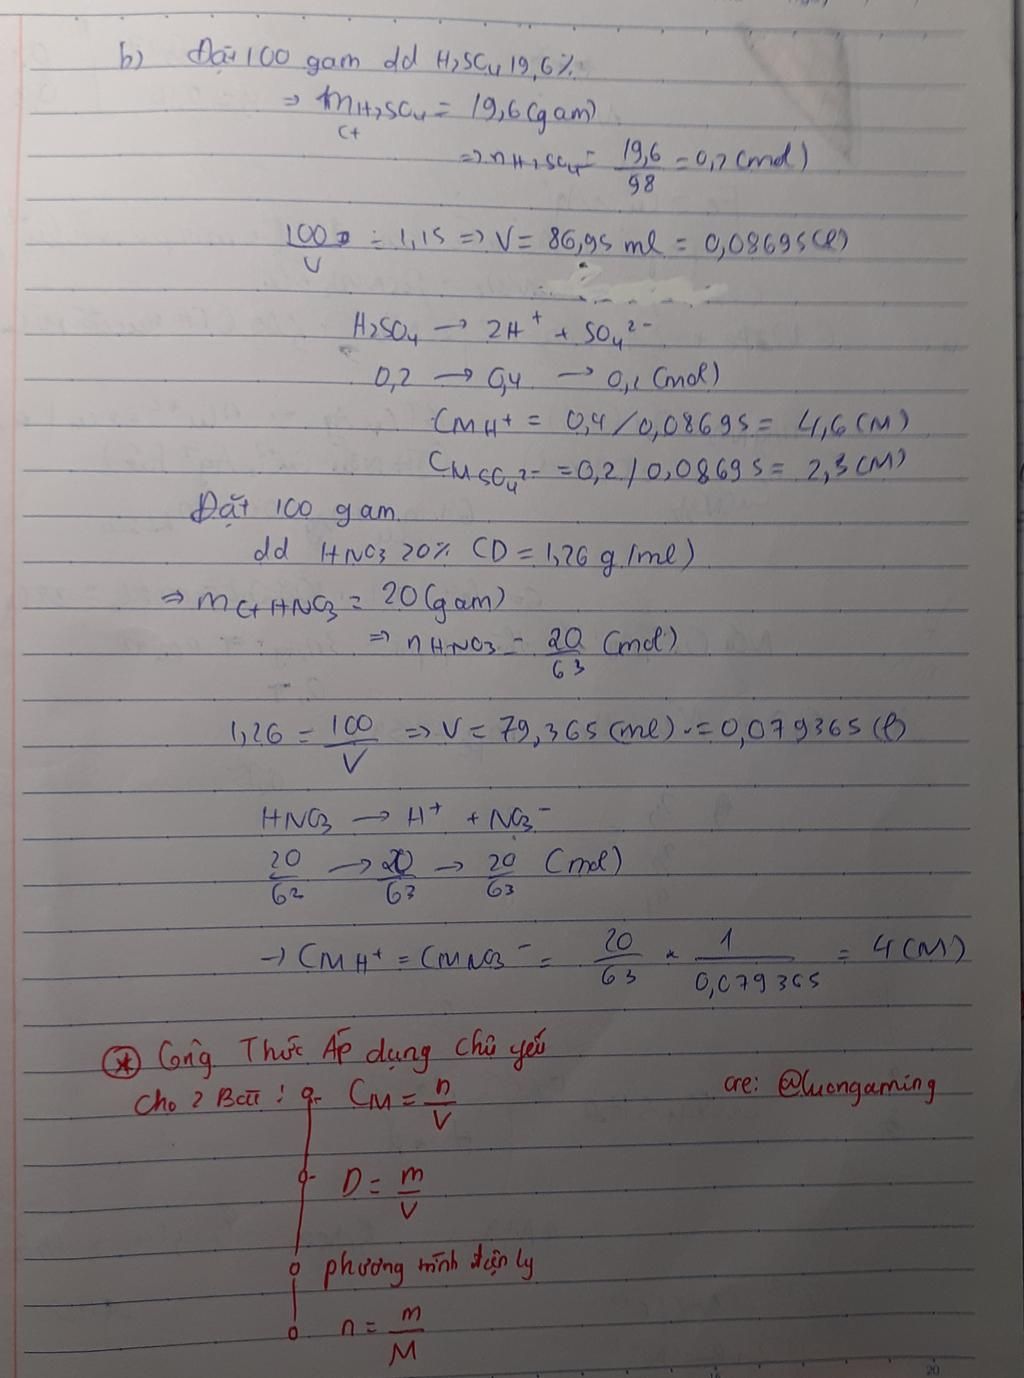 b) Đặt 100 gam dd H₂SO₄ 19,6%
⇒ mH₂SO₄ = 19,6 (gam)
ct
⇒ nH₂SO₄ = 19,6/98 = 0,2 (mol)
100/V = 1,15 ⇒ V = 86,95 ml = 0,08695 (l)
H₂SO₄ → 2H⁺ + SO₄²⁻
0,2 → 0,4 → 0,2 (mol)
CM H⁺ = 0,4/0,08695 = 4,6 (M)
CM SO₄²⁻ = 0,2/0,08695 = 2,3 (M)
Đặt 100 gam
dd HNO₃ 20% (D = 1,26 g/ml)
⇒ mct HNO₃ = 20 (gam)
⇒ nHNO₃ = 20/63 (mol)
1,26 = 100/V ⇒ V = 79,365 (ml) = 0,079365 (l)
HNO₃ → H⁺ + NO₃⁻
20/63 → 20/63 → 20/63 (mol)
→ CM H⁺ = CM NO₃⁻ = 20/63 × 1/0,079365 = 4 (M)
* Công Thức Áp dụng chủ yếu
cho 2 Bài : CM = n/V
cre: @luongaming
D = m/V
phương trình điện ly
n = m/M
20